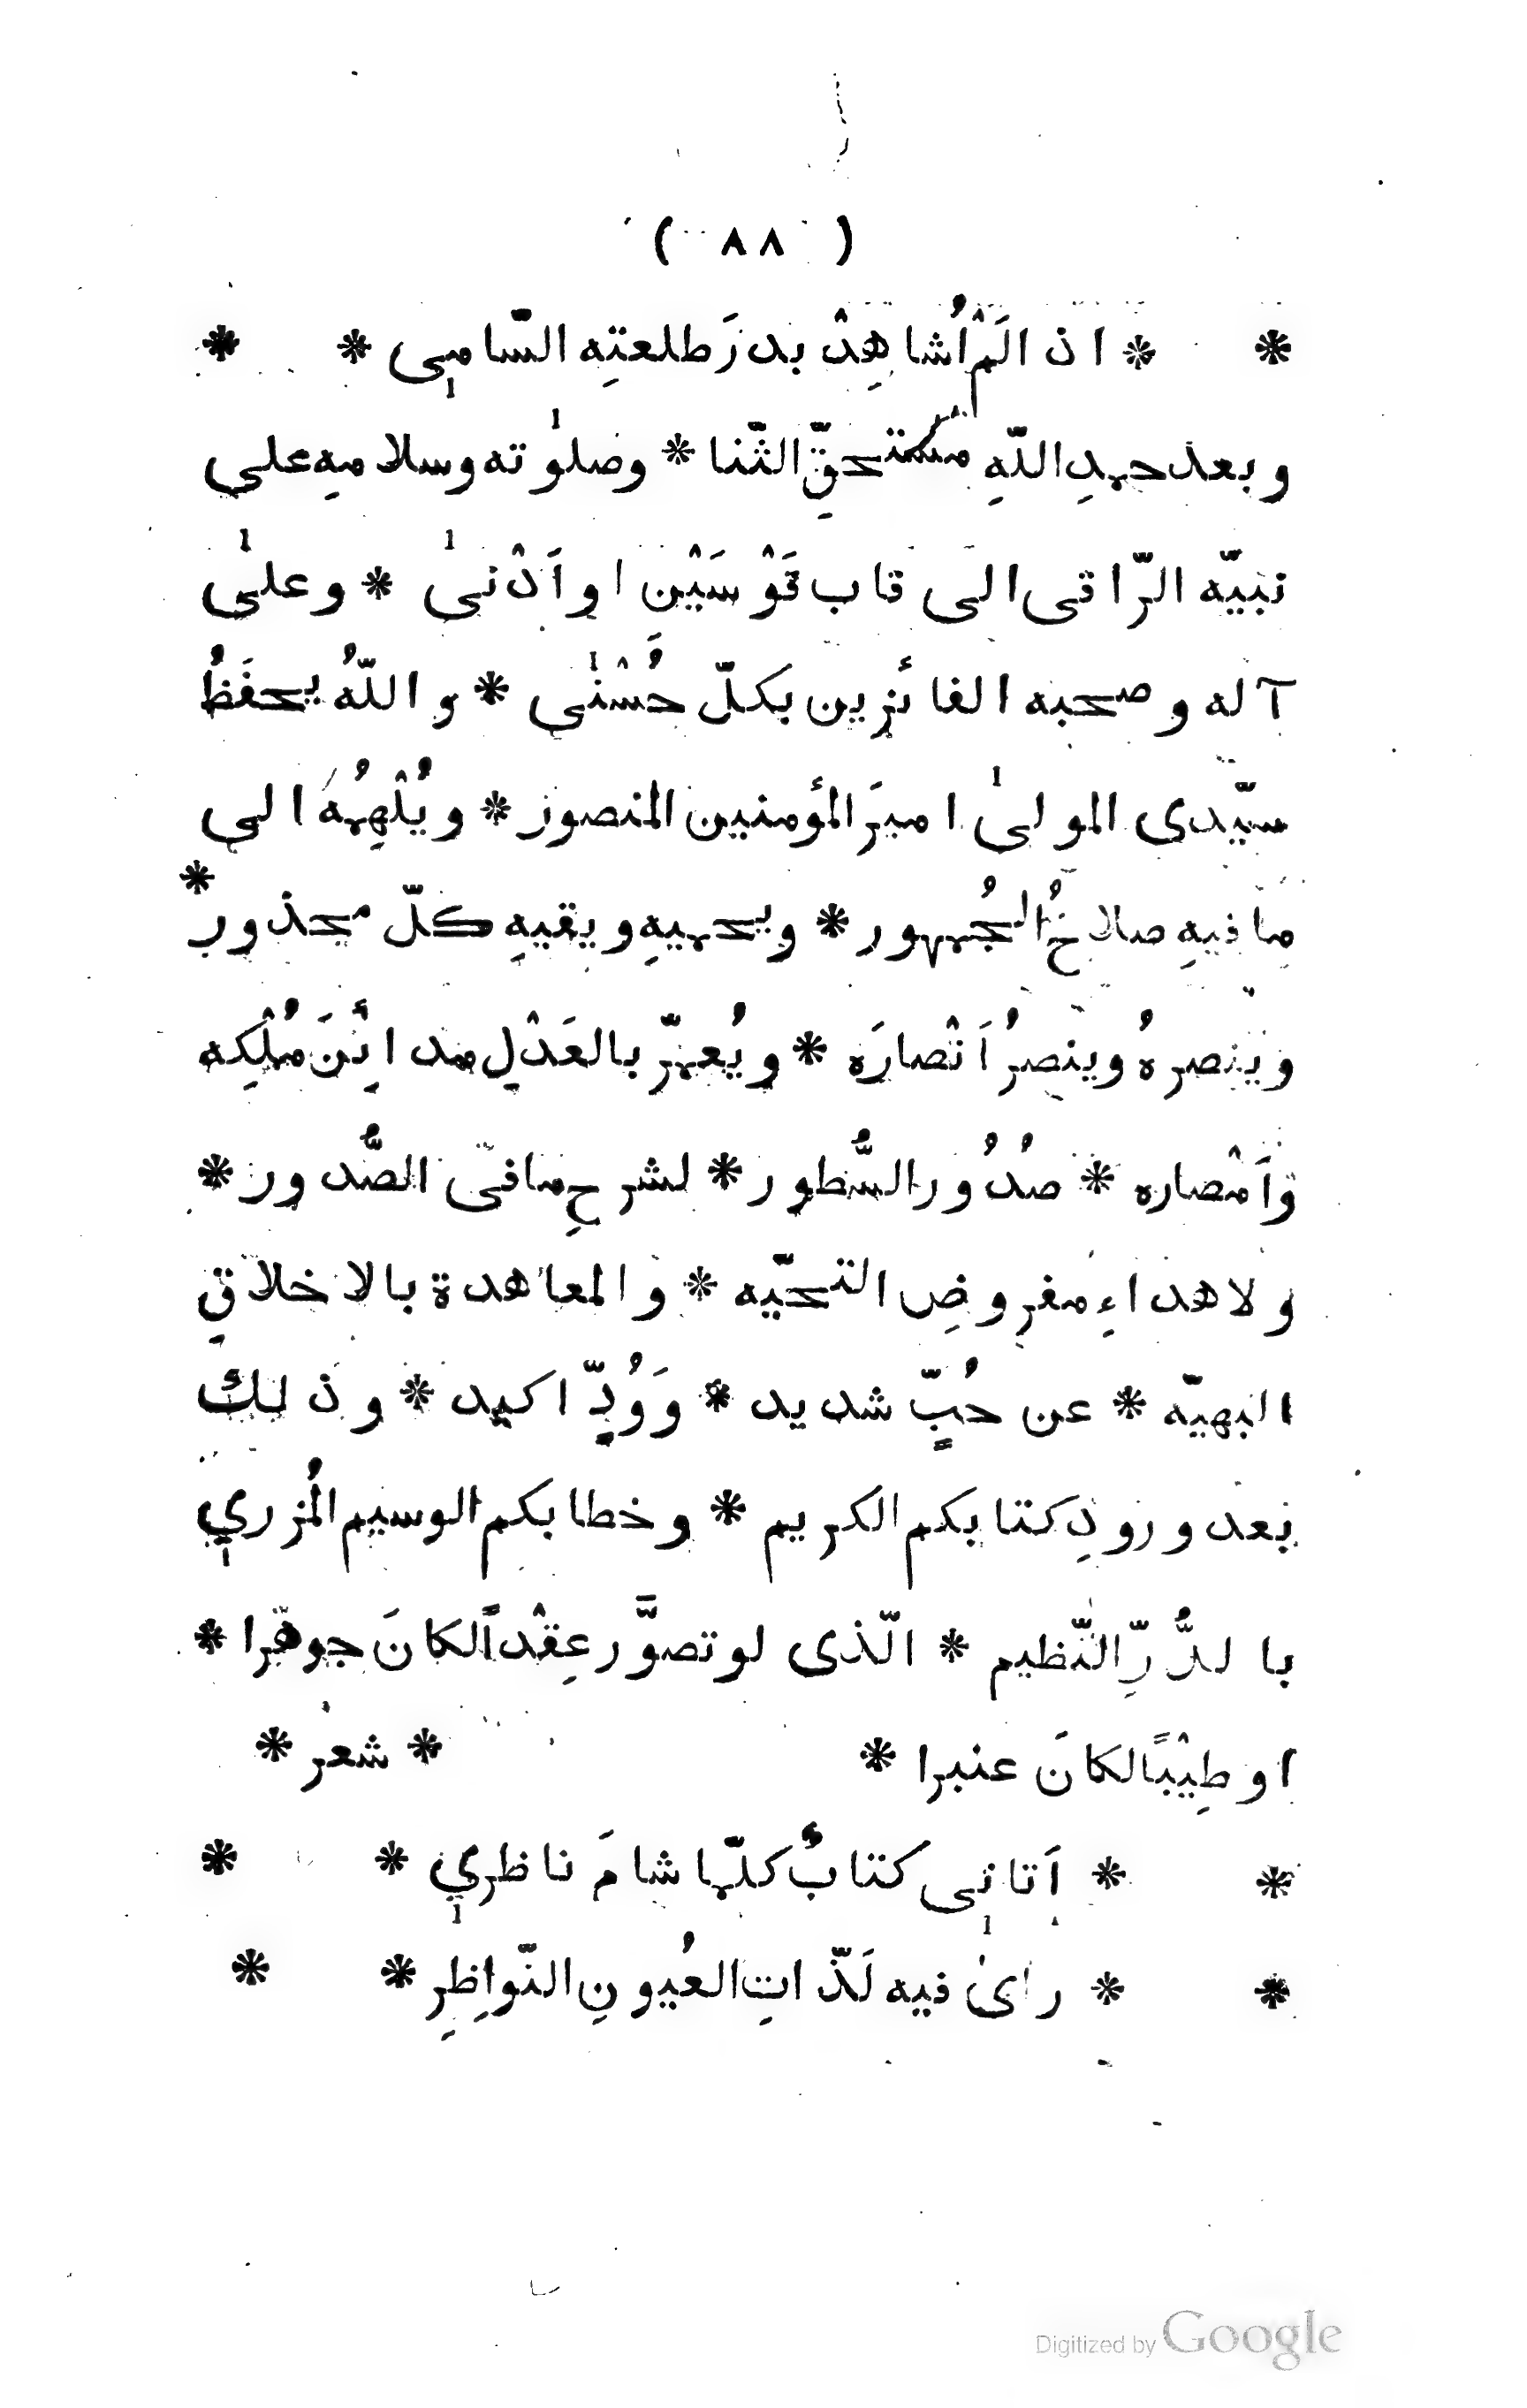 ( ٨٨ )
* * اذ الَمْ اُشاهِدْ بدرَ طلعتِه السّامى * *
وبعد حمدِ اللّهِ مستحقِّ الثّنا * وصلوٰته وسلامهِ على
نبيّه الرّاقى الى قاب قَوْسَيْن او اَدْنىٰ * وعلىٰ
آله وصحبه الفائزين بكلّ حُسْنٰى * واللّهُ يحفَظُ
سيّدى المولىٰ اميرَ المؤمنين المنصور * ويُلْهِمُهُ الى
ما فيهِ صلاحُ الجُمهور * ويحميهِ ويقيهِ كلّ محذور *
وينصرهُ وينصرُ اَنْصارَه * ويُعمّر بالعَدْلِ مدائنَ مُلْكِه
واَمْصاره * صُدُور السُّطور * لشرحِ ما فى الصُّدور *
ولاهداءِ مفروضِ التحيّه * والمعاهدة بالاخلاقِ
البهيّه * عن حُبٍّ شديد * وَوُدٍّ اكيد * وذلك
بعد ورودِ كتابكم الكريم * وخطابكم الوسيم المُزرِي
بالدُّرِّ النّظيم * الّذى لو تصوَّر عِقْداً لكانَ جوهرا *
او طِيْبًا لكانَ عنبرا * * شعر *
* * اَتانى كتابٌ كلّما شامَ ناظرِي * *
* * راىٰ فيه لَذّاتِ العُيونِ النّواظِرِ * *
Digitized by Google